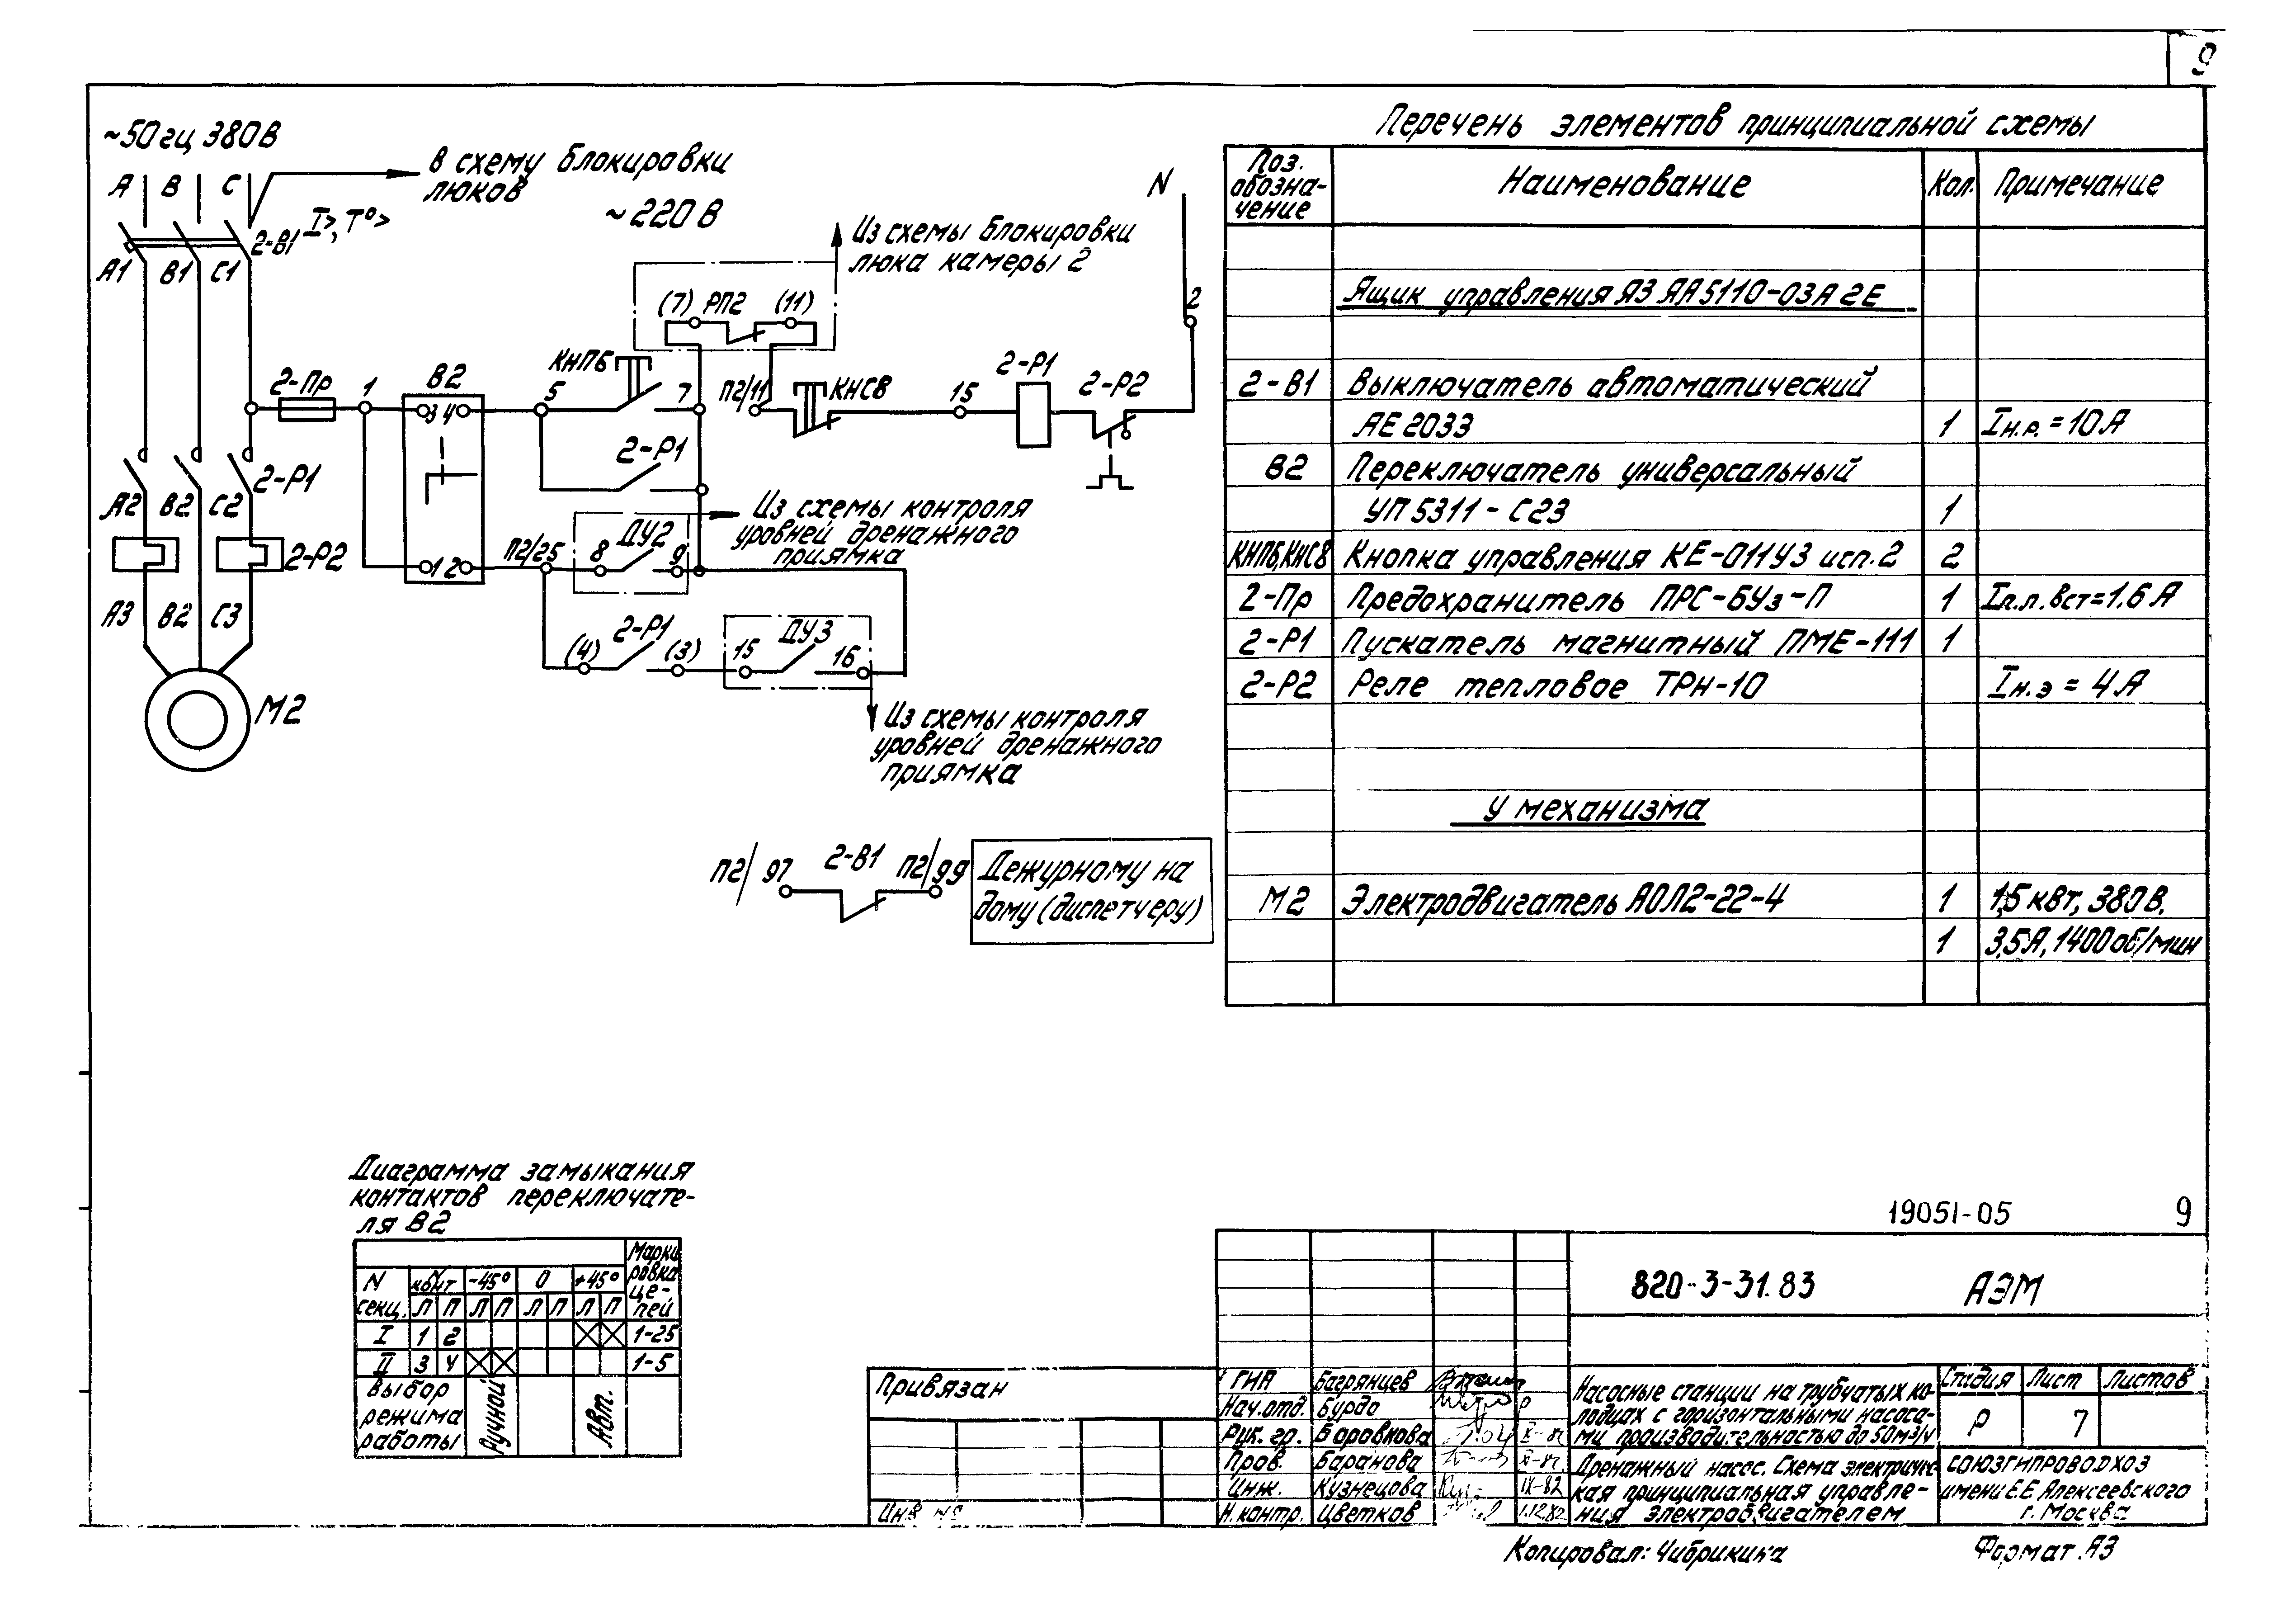 9
~50гц 380В
А В С
В схему блокировки
люков
I>, T°>
2-В1
А1 В1 С1
~220 В
Из схемы блокировки
люка камеры 2
N
2
(7) РП2 (11)
2-Пр
1
В2
3 4
КнП6
5
7
П2/11
КНС8
15
2-Р1
2-Р2
2-Р1
2-Р1
А2 В2 С2
2-Р2
1 2
П2/25
8
ДУ2
9
Из схемы контроля
уровней дренажного
приямка
А3 В2 С3
(4)
2-Р1
(3)
15
ДУ3
16
М2
Из схемы контроля
уровней дренажного
приямка
П2/97
2-В1
П2/99
Дежурному на
дому (диспетчеру)
Перечень элементов принципиальной схемы
Поз. обозна-чение Наименование Кол. Примечание
Ящик управления ЯЗ ЯА5110-03А2Е
2-В1 Выключатель автоматический
АЕ 2033 1 Iн.р. = 10 А
В2 Переключатель универсальный
УП 5311-С23 1
КНП6,КНС8 Кнопка управления КЕ-011У3 исп. 2 2
2-Пр Предохранитель ПРС-6Уз-П 1 Iп.л.вст=1.6 А
2-Р1 Пускатель магнитный ПМЕ-111 1
2-Р2 Реле тепловое ТРН-10 Iн.э = 4 А
У механизма
М2 Электродвигатель АОЛ2-22-4 1 1,5 кВт, 380 В,
1 3,5А, 1400 об/мин
Диаграмма замыкания
контактов переключате-
ля В2
N секц. N конт -45° 0 +45° Марки ровка це-пей
Л П Л П Л П Л П
I 1 2 1-25
II 3 4 1-5
Выбор
режима
работы
Ручной
Авт.
19051-05 9
820-3-31.83 АЭМ
Привязан
Инв №
ГИА Багрянцев
Нач.отд. Бурдо
Рук. гр. Боровкова
Пров. Баранова
Инж. Кузнецова IX-82
Н.контр. Цветков 1.12.82
Насосные станции на трубчатых ко-
лодцах с горизонтальными насоса-
ми производительностью до 50м3/ч
Стадия Лист Листов
Р 7
Дренажный насос. Схема электричес-
кая принципиальная управле-
ния электродвигателем
СОЮЗГИПРОВОДХОЗ
имени Е.Е. Алексеевского
г. Москва
Копировал: Чибрикина
Формат А3